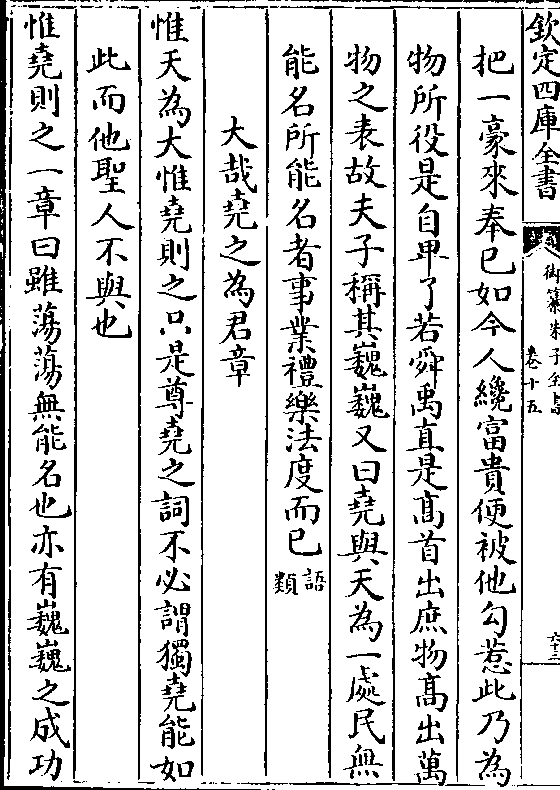 欽定四庫全書
御纂朱子全書
卷十五
六十三
把一豪來奉已如今人纔富貴便被他勾惹此乃為
物所役是自卑了若舜禹直是髙首出庶物髙出萬
物之表故夫子稱其巍巍又曰堯與天為一處民無
能名所能名者事業禮樂法度而已語類
大哉堯之為君章
惟天為大惟堯則之只是尊堯之詞不必謂獨堯能如
此而他聖人不與也
惟堯則之一章曰雖蕩蕩無能名也亦有巍巍之成功